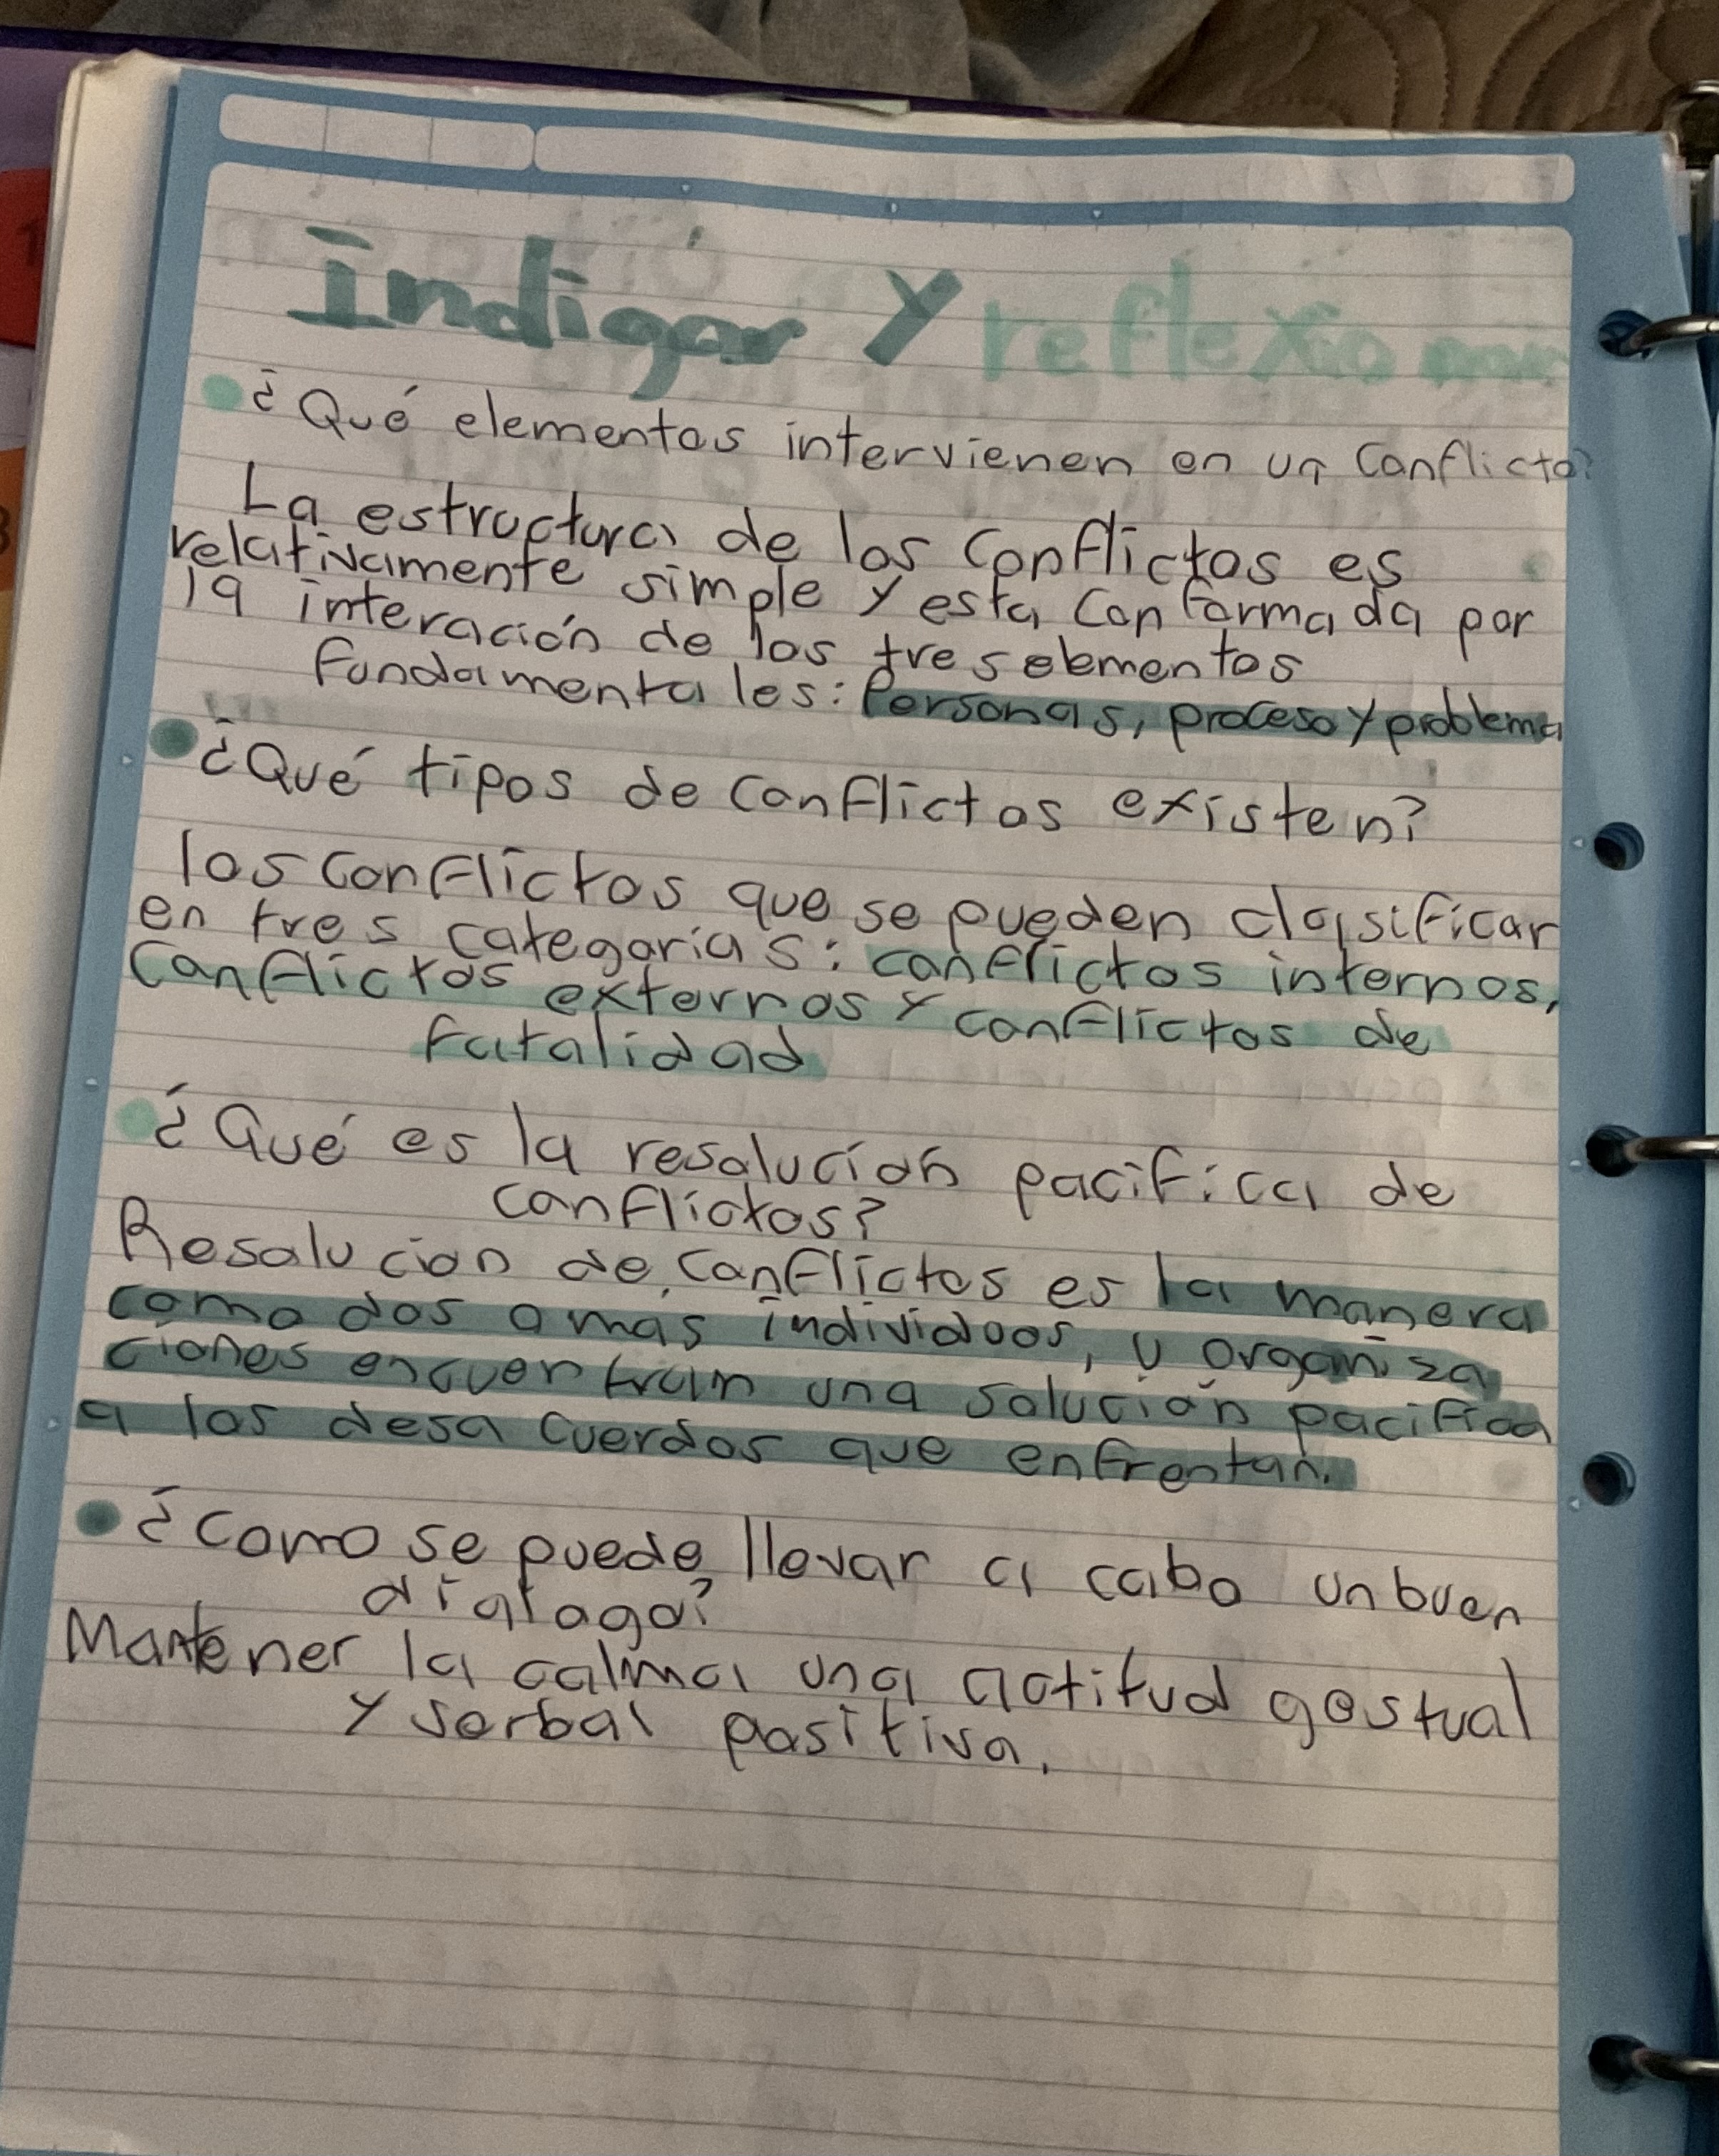 Indigar y reflexionar
¿Qué elementos intervienen en un conflicto?
La estructura de los conflictos es
relativamente simple y esta conformada por
la interación de los tres elementos
fundamentales: Personas, proceso y problema
¿Qué tipos de conflictos existen?
los conflictos que se pueden clasificar
en tres categorias: conflictos internos,
conflictos externos y conflictos de
fatalidad
¿Qué es la resolución pacifica de
conflictos?
Resolucion de conflictos es la manera
como dos o más individuos, u organiza
ciones encuentran una solución pacifica
a los desacuerdos que enfrentan.
¿como se puede llevar a cabo un buen
dialogo?
Mantener la calma una actitud gestual
y serbal positiva.